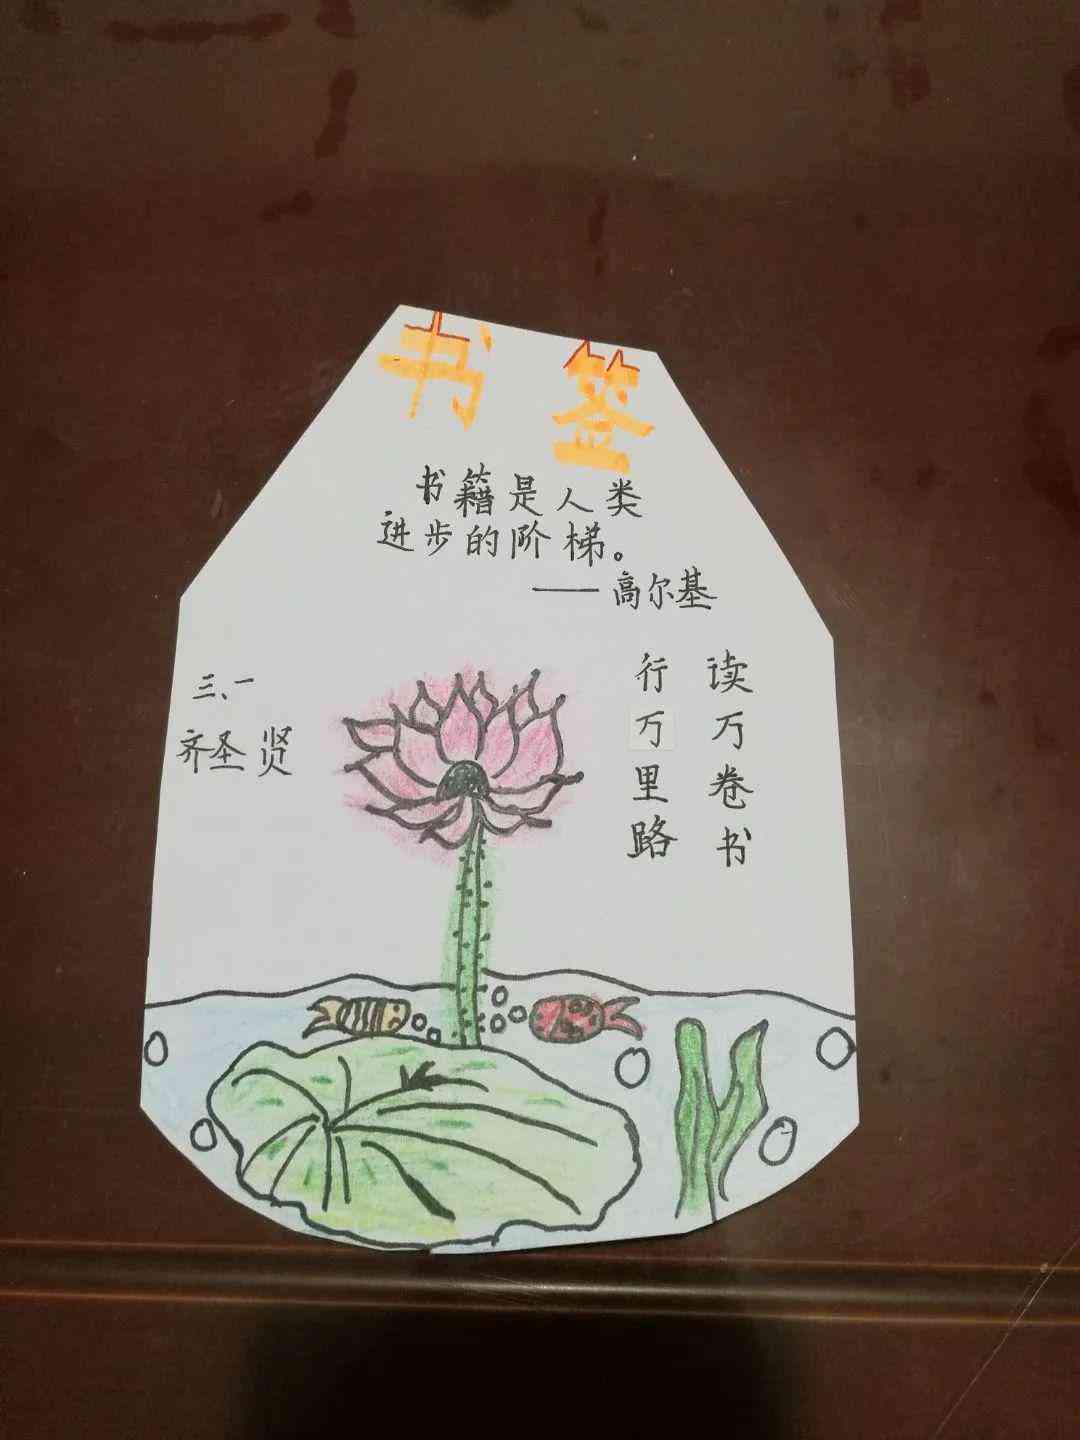 书签
书籍是人类
进步的阶梯。
——高尔基
读万卷书
行万里路
三、一
齐圣贤